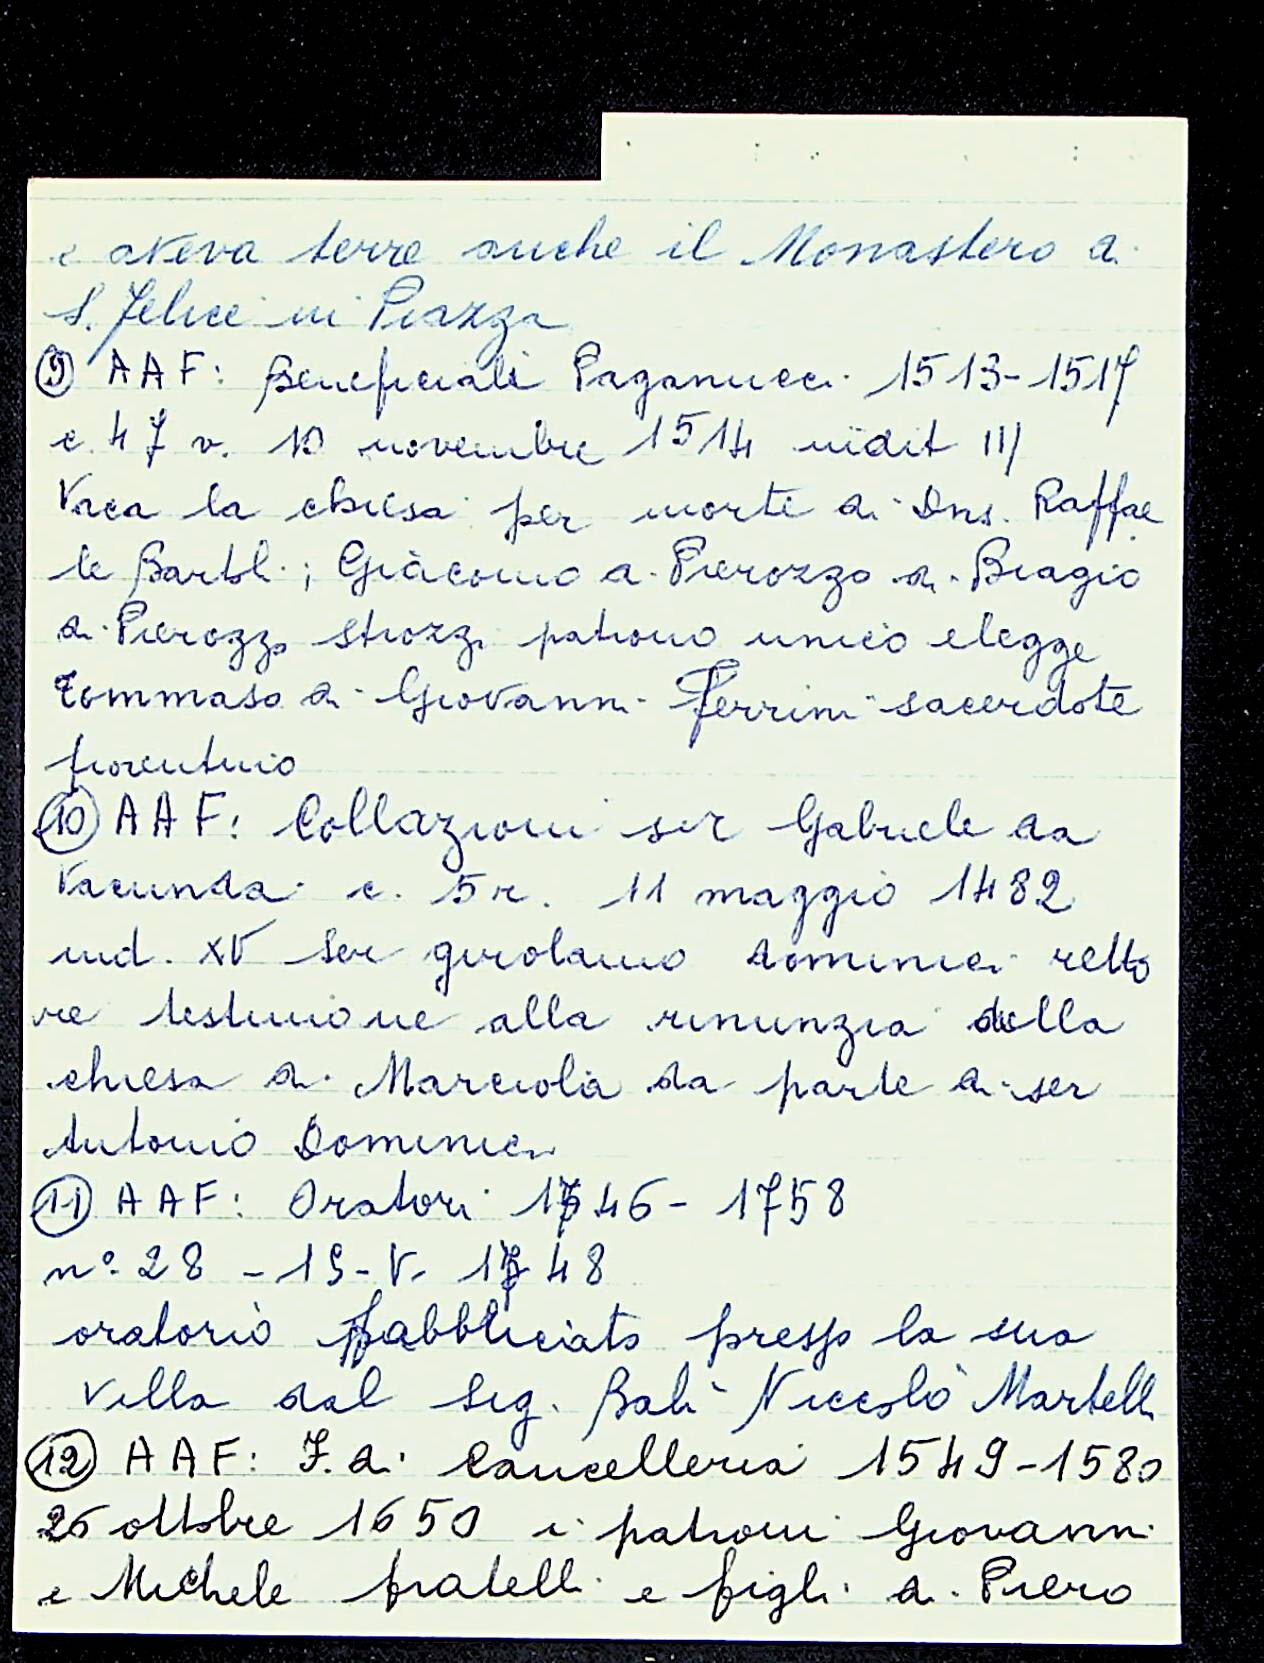 e aveva terre anche il Monastero di
S. Felice in Piazza
⑨ AAF: Beneficiali Paganucci 1513-1517
c. 47 v. 10 novembre 1514 indit III
Vaca la chiesa per morte di Dns. Raffae
le Bartl.; Giàcomo di Pierozzo di Biagio
di Pierozzo Strozzi patrono unico elegge
Tommaso di Giovanni Ferrini sacerdote
fiorentino
⑩ AAF: Collazioni ser Gabriele da
Vacunda c. 5r. 11 maggio 1482
ind. XV Ser girolamo Dominici retto
re testimone alla rinunzia della
chiesa di Marciola da parte di ser
Antonio Dominici
⑪ AAF: Oratori 1746- 1758
n° 28 - 19-V- 1748
oratorio fabbricato presso la sua
Villa dal Sig. Balì Niccolò Martelli
⑫ AAF: F. di Cancelleria 1549-1580
26 ottobre 1650 i patroni Giovanni
e Michele fratelli e figli di Piero